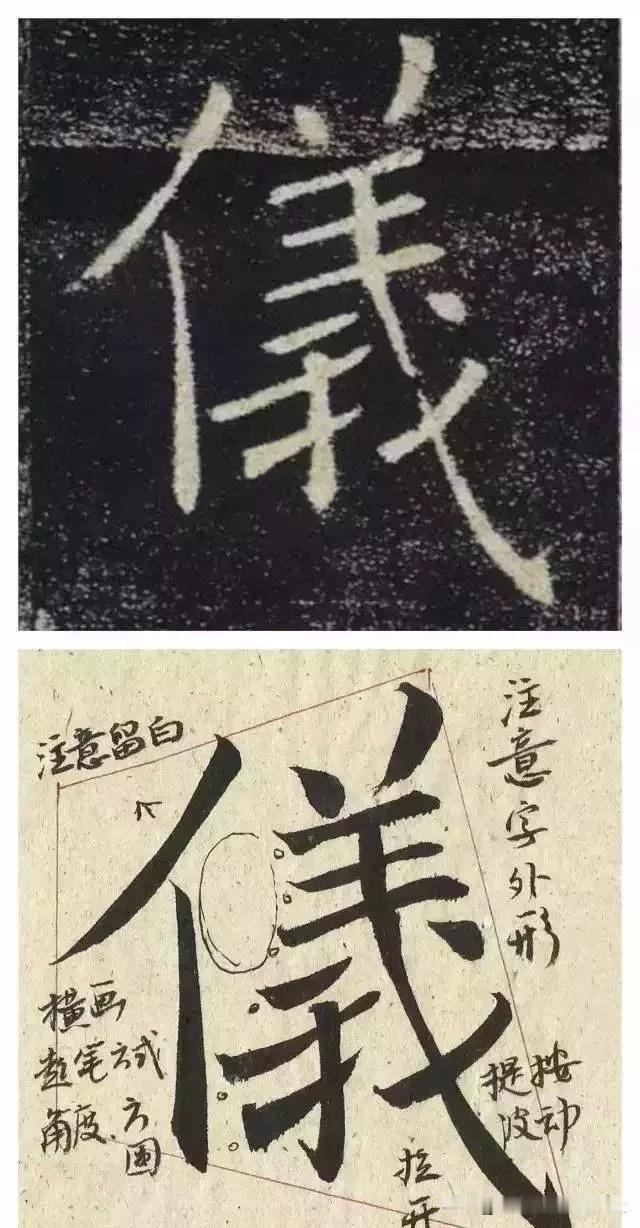 儀
注意留白
儀
注意字外形
横画
起笔方式
角度方圆
提按
波动
拉开